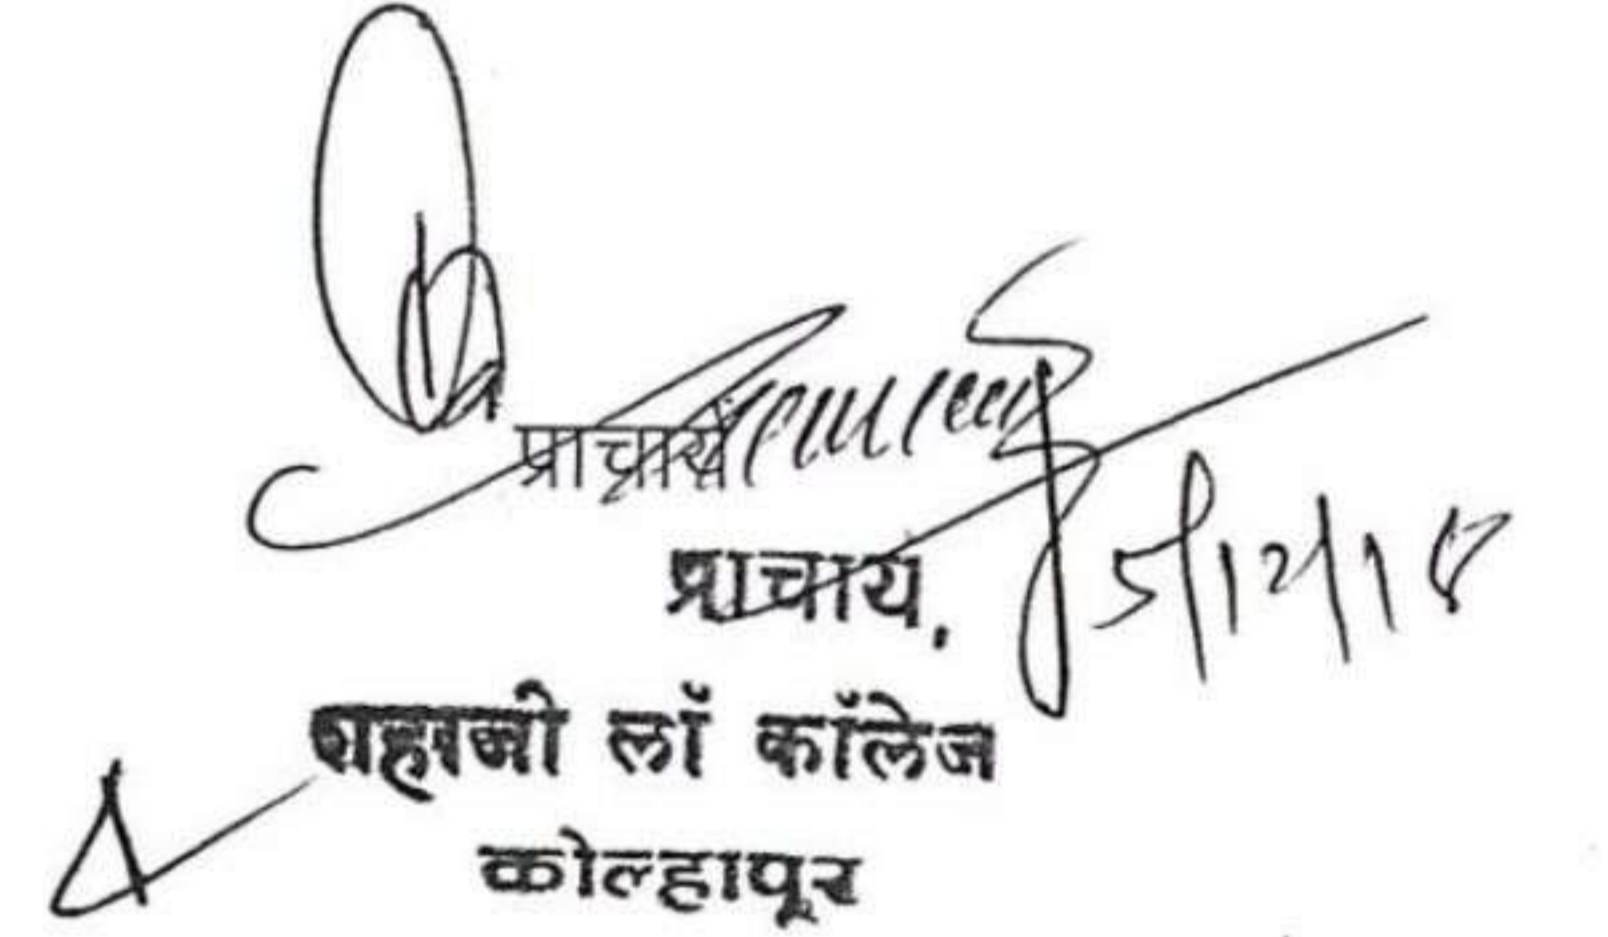 प्राचार्य
प्राचार्य,
5/12/18
शहाजी लॉ कॉलेज
कोल्हापूर